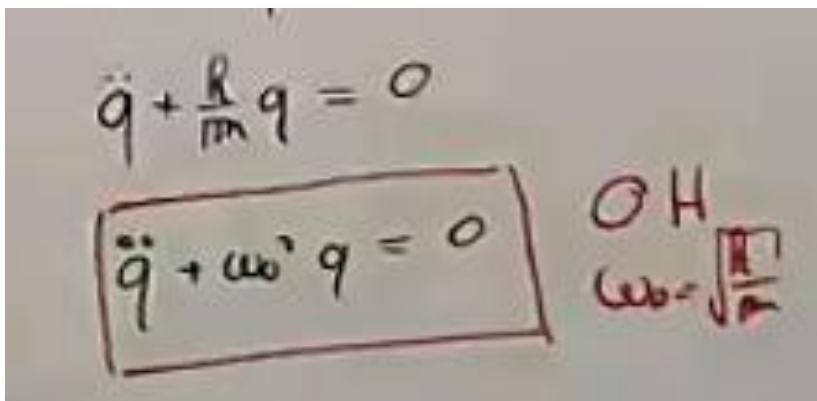 q̈ + k/m q = 0
q̈ + ω₀² q = 0
OH
ω₀ = √(k/m)